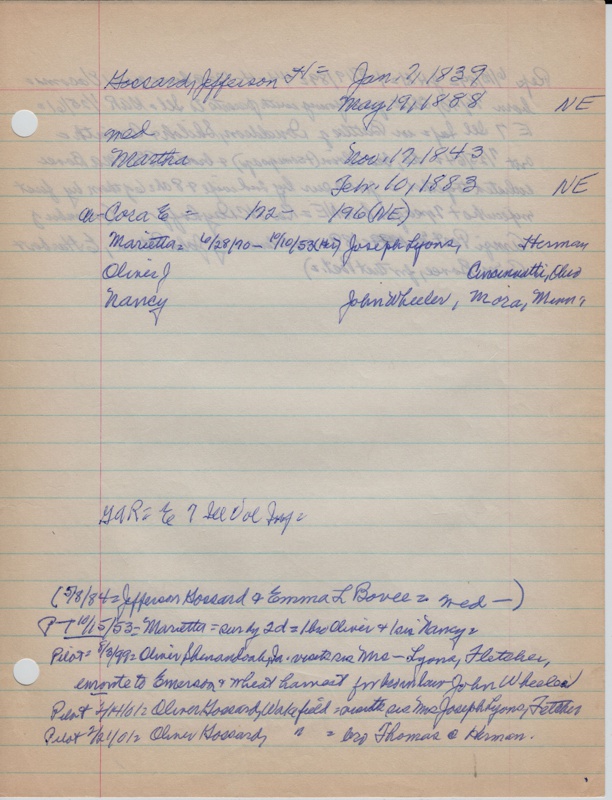 Gossard, Jefferson H = Jan. 2, 1839
May 19, 1888 NE
med
Martha Nov. 17, 1843
Febr. 10, 1883 NE
Cora E = 172 - 196 (NE)
Marietta = 6/28/70 - 10/10/53 Joseph Lyons, Herman
Oliver J Cincinnatti, Ohio
Nancy John Wheeler, Mora, Minn,
GAR = E 7 Ill Vol Inf =
(5/8/84 = Jefferson Gossard & Emma L Bovee = med -)
P-T 10/15/53 = Marietta = sur by 2d = 1 bro Oliver & 1 sis Nancy =
Pilot = 8/3/99 = Oliver Shenandoah, Ia. visits sis Mrs - Lyons, Fletcher,
enroute to Emerson & wheat harvest for bro in law John Wheeler
Pilot 2/14/01 = Oliver Gossard, Wakefield = visits sis Mrs Joseph Lyons, Fletcher
Pilot 2/21/01 = Oliver Gossard, " = bro Thomas @ Herman.